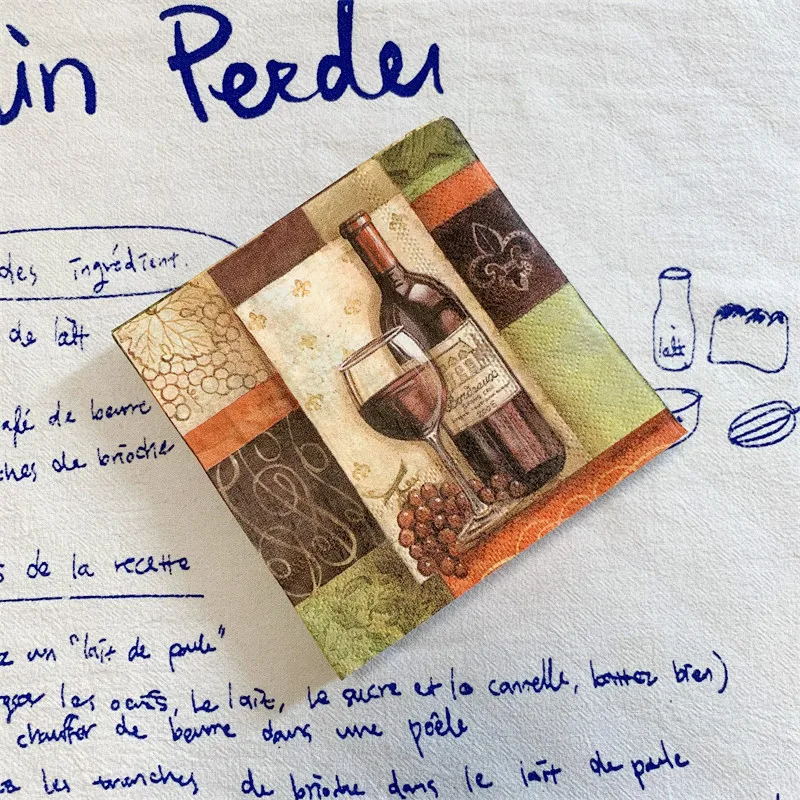 in Perdu
des ingrédient.
de lait
café de beurre
ches de brioche
lait
Bordeaux
de la recette
z un "lait de poule"
les oeufs, le lait, le sucre et la cannelle, battez bien)
chauffer de beurre dans une poêle
les tranches de brioche dans le lait de poule